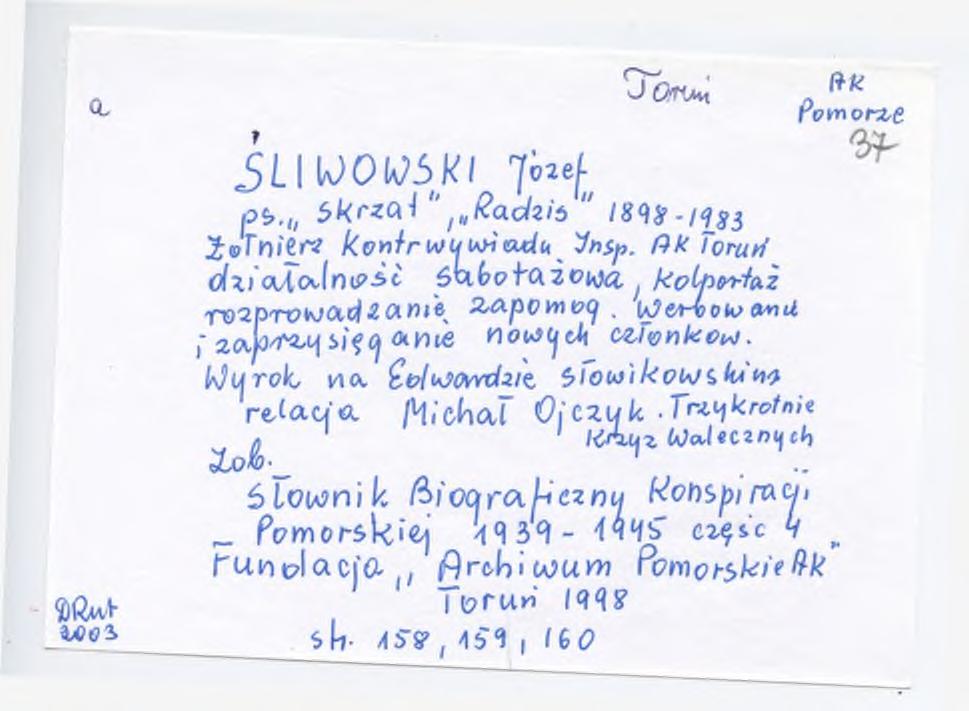 a
Toruń
AK
Pomorze
37
ŚLIWOWSKI Józef
ps. „Skrzat", „Radzis" 1898-1983
Żołnierz Kontrwywiadu Insp. AK Toruń
działalność sabotażowa, kolportaż
rozprowadzanie zapomog. Werbowanie
i zaprzysięganie nowych członkow.
Wyrok na Edwardzie Słowikowskim
relacja Michał Ojczyk. Trzykrotnie
Krzyz Walecznych
Zob.
Słownik Biograficzny Konspiracji
Pomorskiej 1939-1945 częśc 4
Fundacja „Archiwum Pomorskie AK"
Toruń 1998
DRut
2003
str. 158, 159, 160